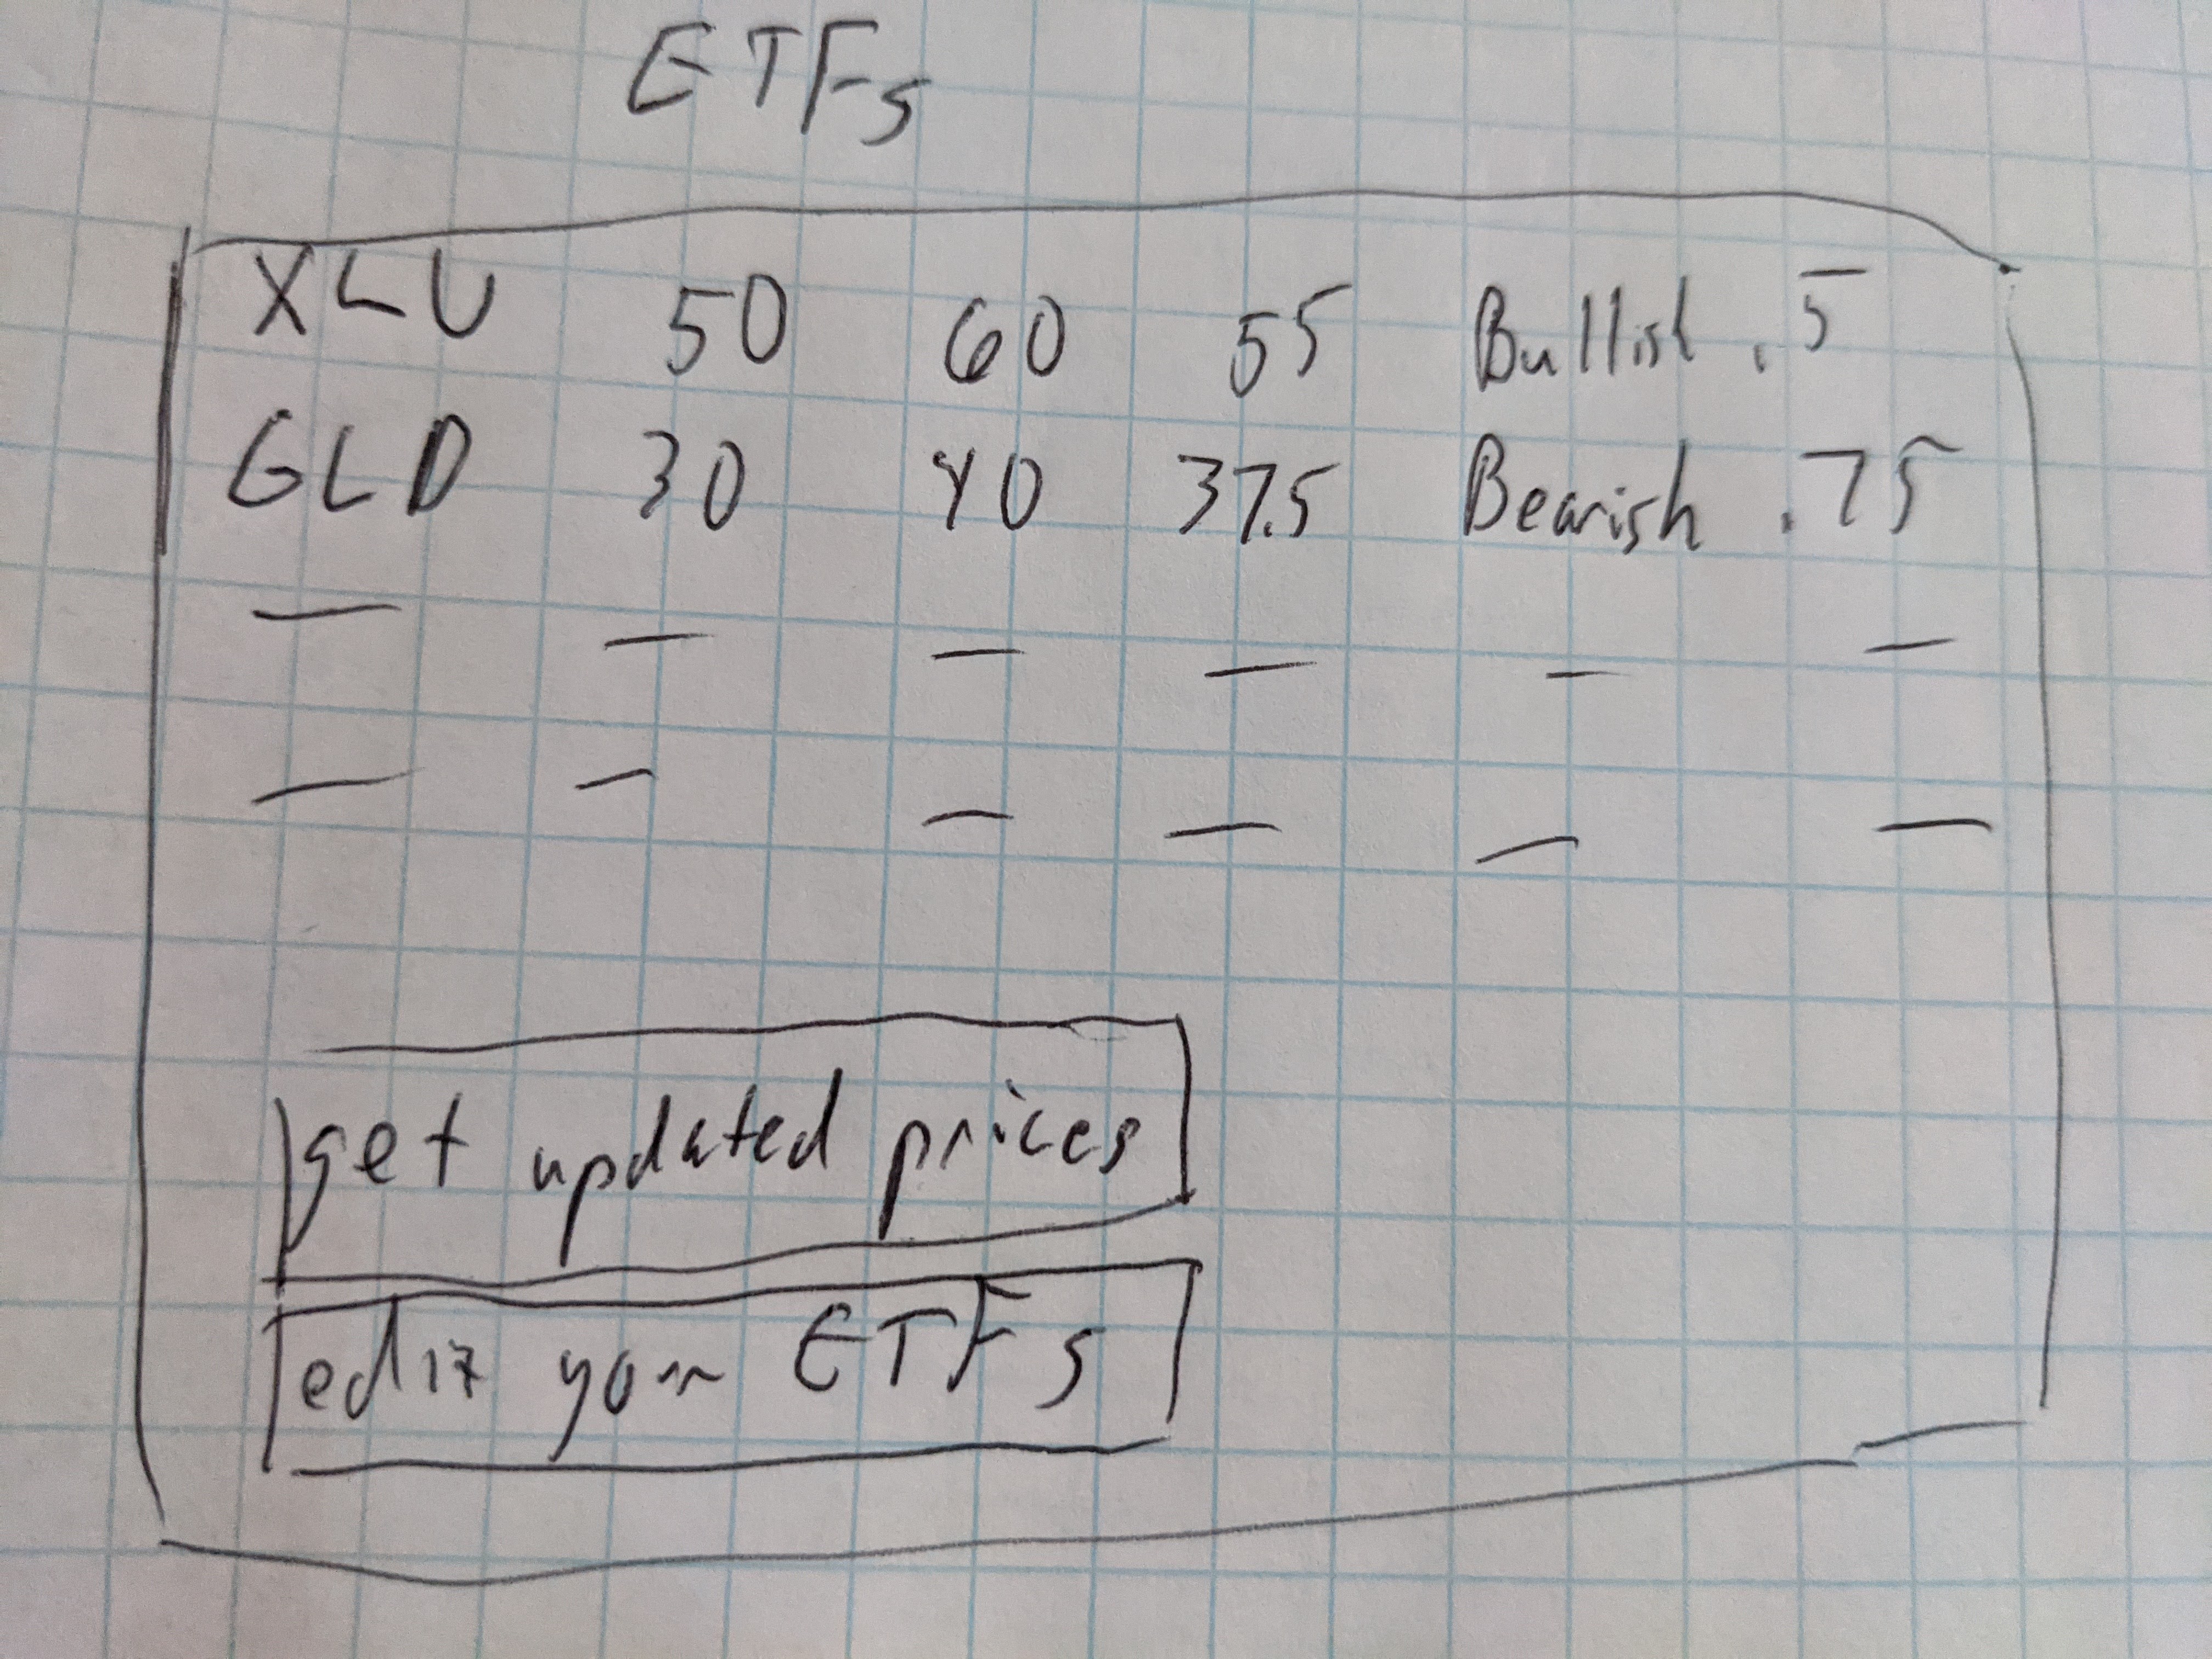 ETFs
XLU 50 60 55 Bullish .5
GLD 30 40 37.5 Bearish .75
— — — — — —
— — — — — —
get updated prices
edit your ETFs